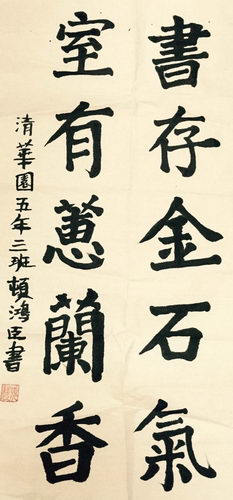 書存金石氣
室有蕙蘭香
清華園五年三班頓鴻臣書